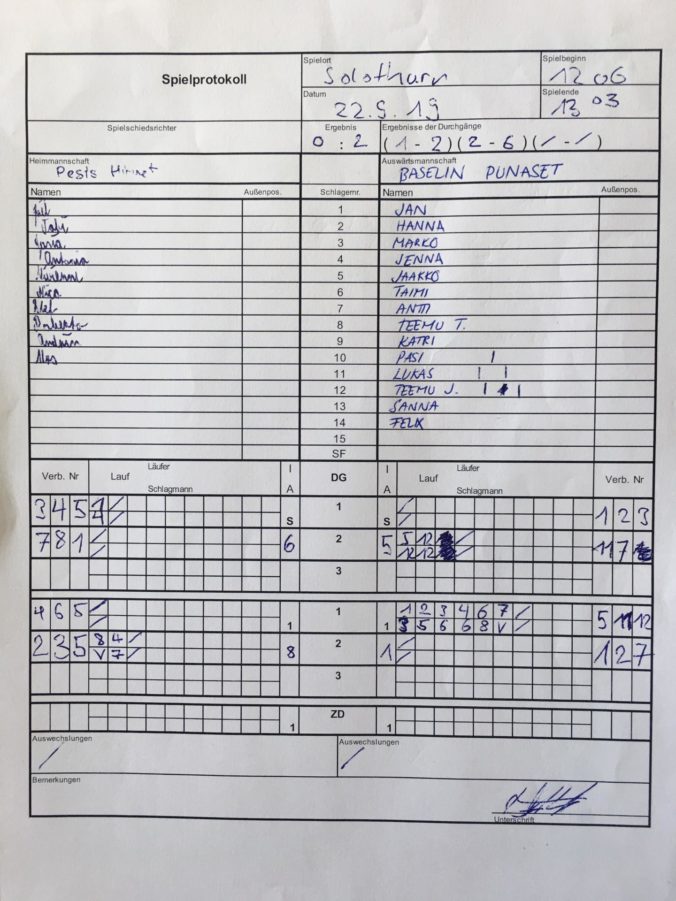 Spielprotokoll
Spielort
Solothurn
Spielbeginn
12 06
Datum
22.9.19
Spielende
13 03
Spielschiedsrichter
Ergebnis
0 : 2
Ergebnisse der Durchgänge
(1 - 2) (2 - 6) ( / - / )
Heimmannschaft
Pesis
Auswärtsmannschaft
BASELIN PUNASET
Namen Außenpos. Schlagernr. Namen Außenpos.
1 JAN
2 HANNA
3 MARKO
Antonia 4 JENNA
5 JAAKKO
6 TAIMI
7 ANTTI
8 TEEMU T.
9 KATRI
10 PASI |
11 LUKAS | |
12 TEEMU J.
13 SANNA
14 FELIX
15
SF
Verb. Nr Lauf Läufer Schlagmann I A DG I A Lauf Läufer Schlagmann Verb. Nr
3 4 5 S 1 S 1 2 3
7 8 1 6 2 5 5 12 11 7
12 12
3
4 6 5 1 1 1 1 2 3 4 6 7 5 11 12
3 5 6 6 8 V
2 3 5 8 4 8 2 1 1 2 7
V 7
3
1 ZD 1
Auswechslungen
/
Auswechslungen
/
Bemerkungen
Unterschrift